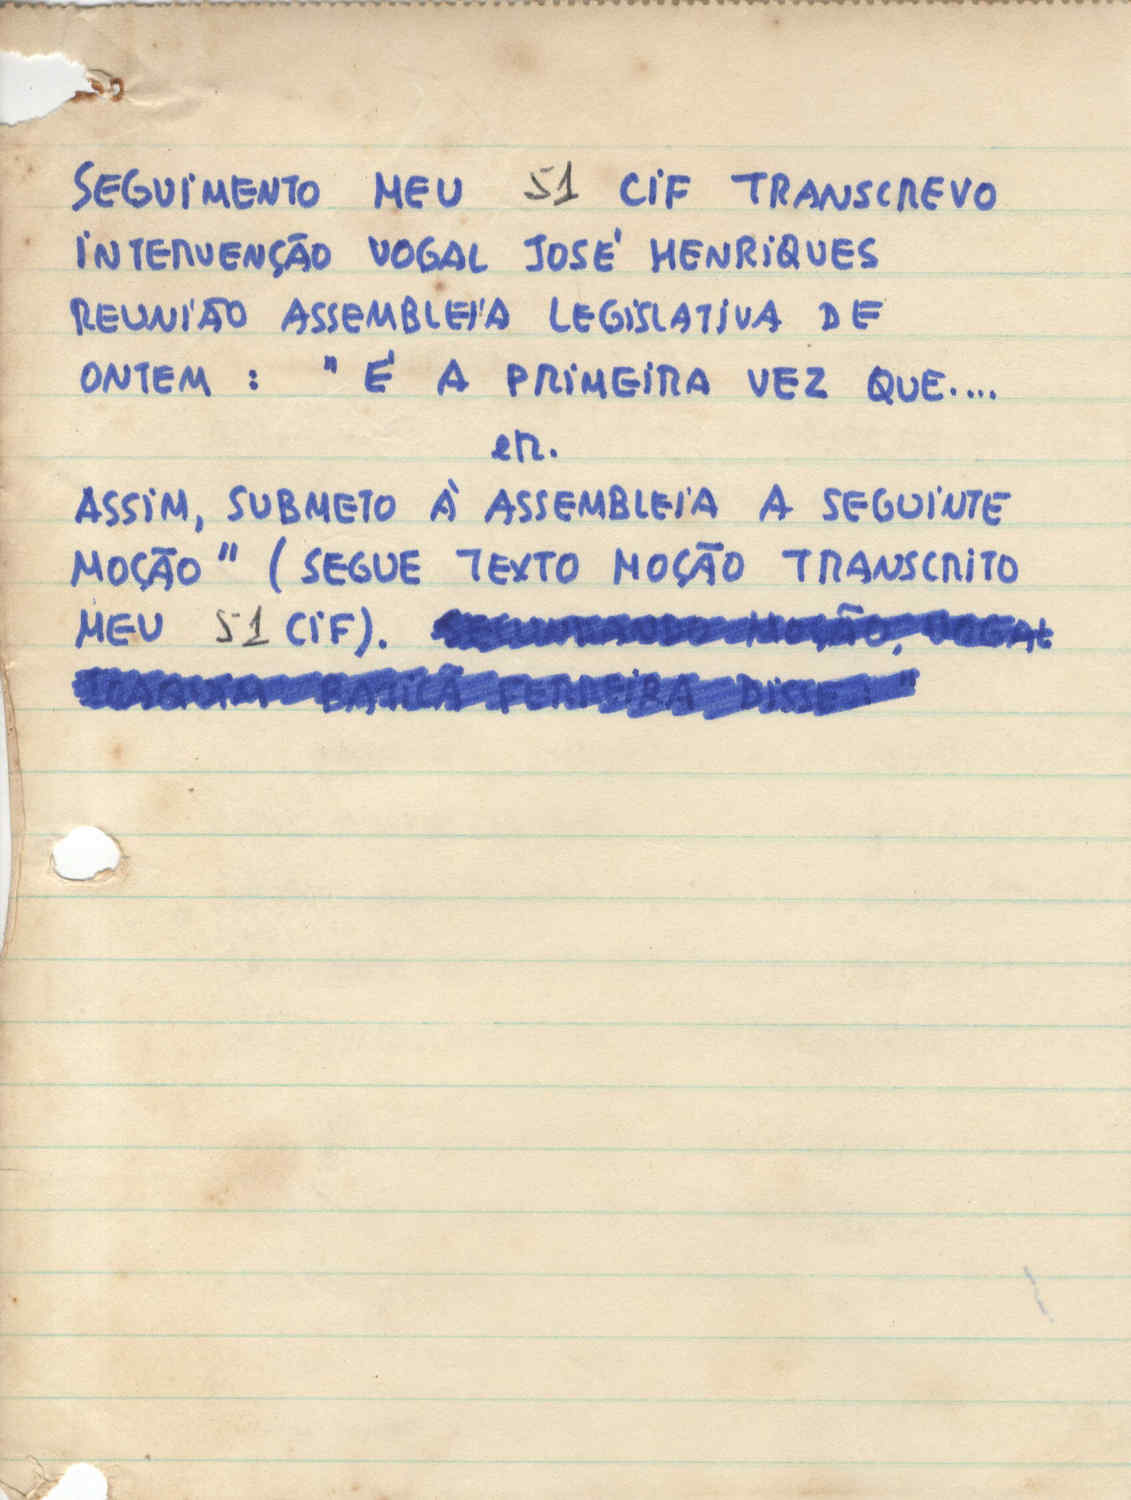 SEGUIMENTO MEU 51 CIF TRANSCREVO
INTERVENÇÃO VOGAL JOSÉ HENRIQUES
REUNIÃO ASSEMBLEIA LEGISLATIVA DE
ONTEM : " É A PRIMEIRA VEZ QUE....
ASSIM, SUBMETO À ASSEMBLEIA A SEGUINTE
MOÇÃO" (SEGUE TEXTO MOÇÃO TRANSCRITO
MEU 51 CIF). MOÇÃO, VOGAL
FERREIRA DISSE : "